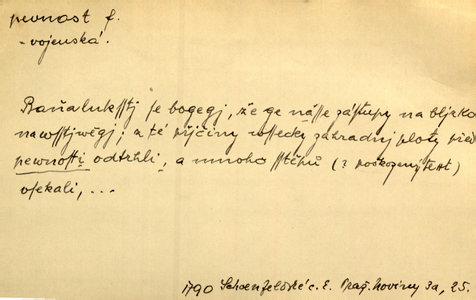 pevnost f.
- vojenská.
Baňaluksstj se bogegj, že ge násse zástupy na bljzko
nawsstjwěgj; a té přjčiny wssecky záhradnj ploty před
pewnostj odtrhli, a mnoho sstěpů (? poškozený text)
osekali, ...
1790 Schoenfeldské c. k. Praž. Noviny 3a, 25.